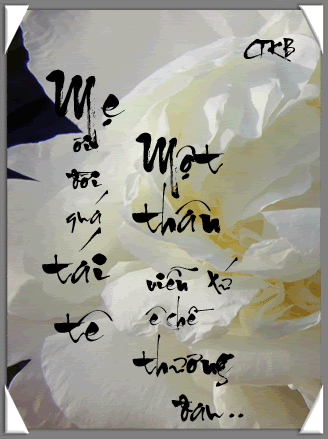 CTKB
Mẹ
ơi
đời
quá
tái
tê
Một
thân
viễn xứ
ê chề
thương
đau..